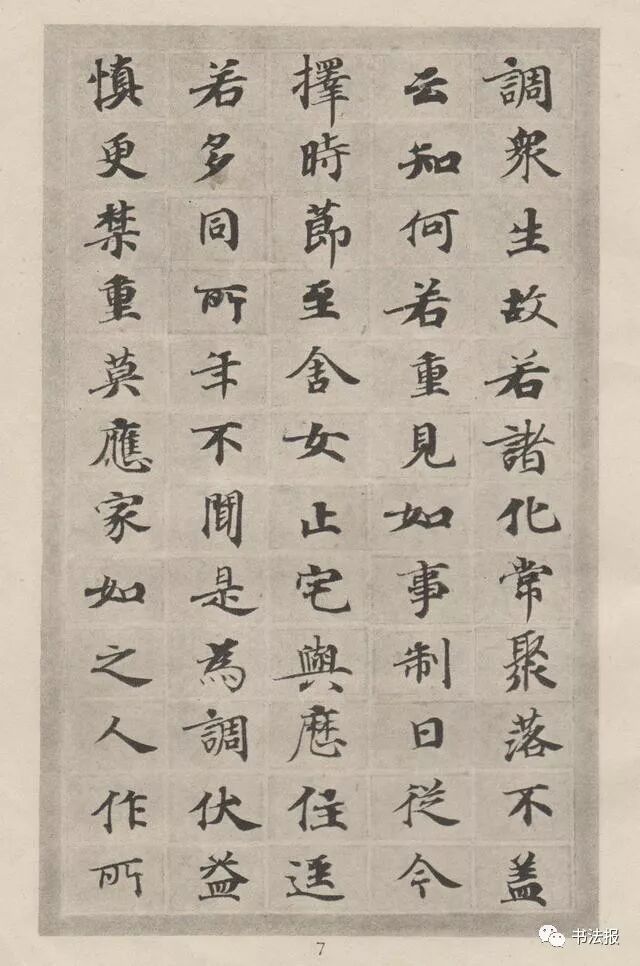 調衆生故若諸化常聚落不盖
云知何若重見如事制日從今
擇時莭至舍女止宅與
若多同所年不聞是為調伏益
慎更禁重莫應家如之人作所
7
书法报